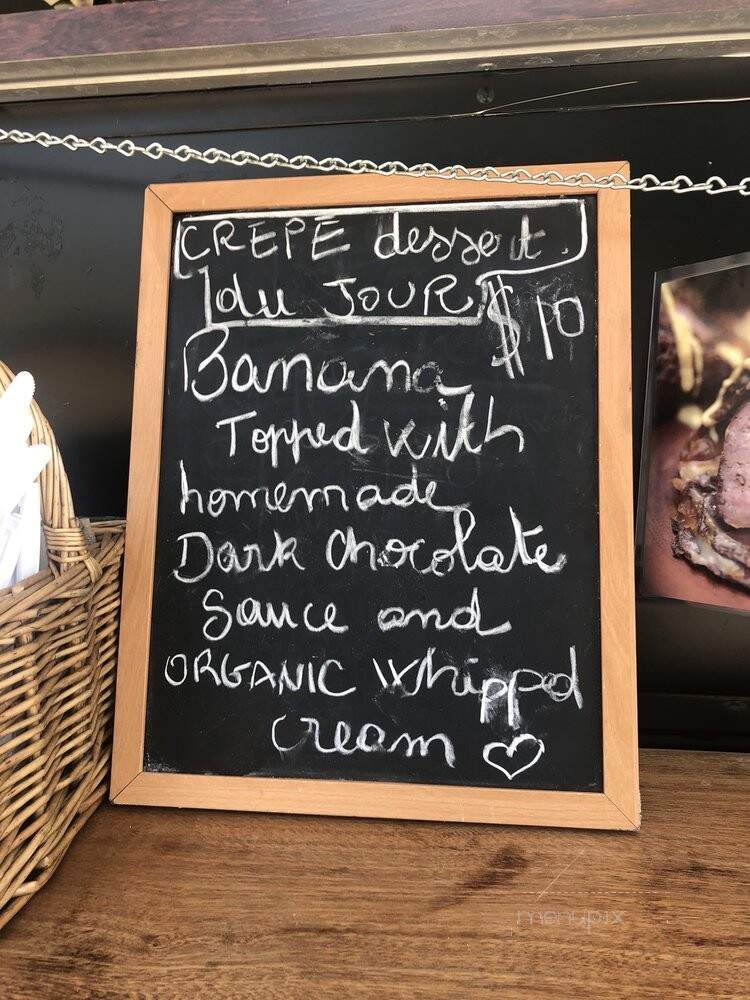 CREPE dessert
du JOUR
$10
Banana
Topped with
homemade
Dark chocolate
Sauce and
ORGANIC whipped
cream ♡
menupix